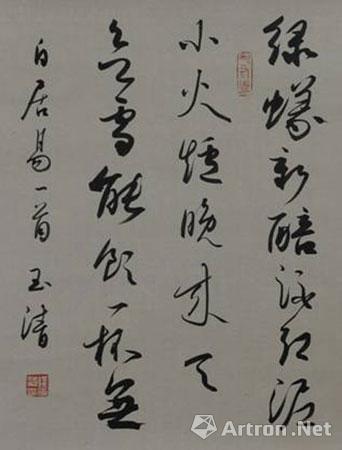 綠蟻新醅酒紅泥
小火爐晚來天
欲雪能飲一杯無
白居易一首 玉清
Artron.Net